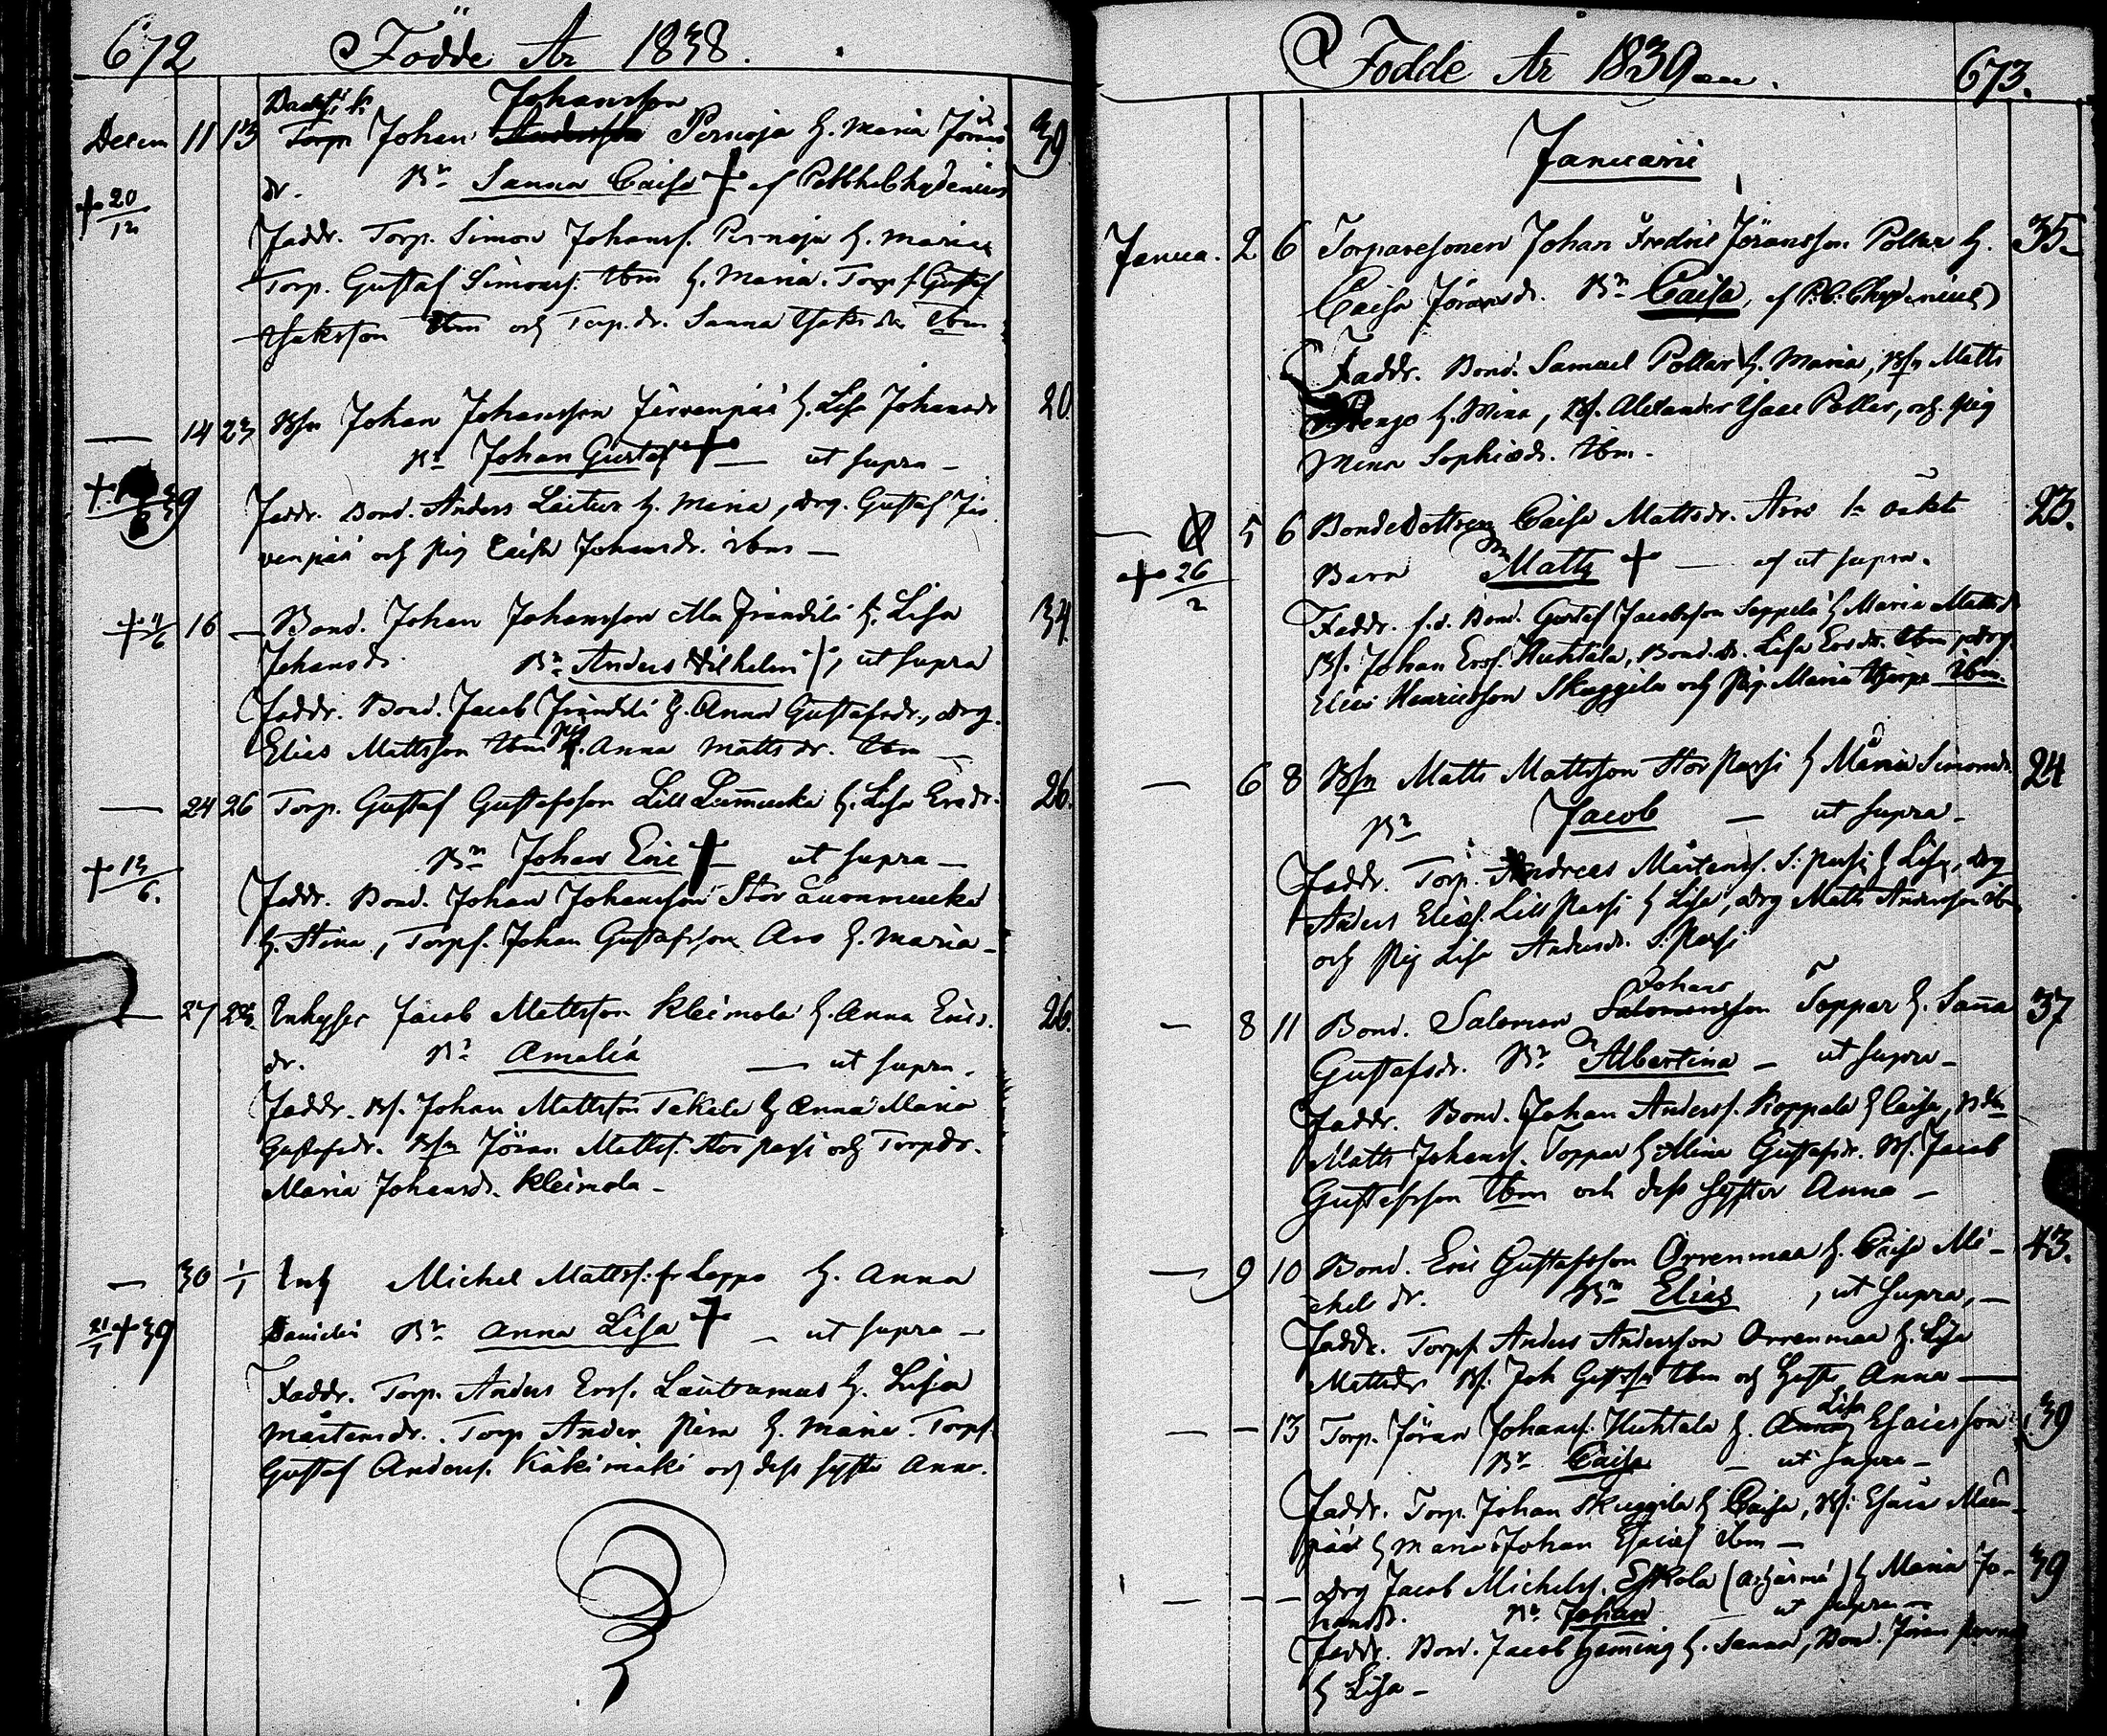 672 Födde År 1838.
Johansson
Decem 11 13 Torpn Johan Pernoja h. Maria Jörans 39
dr. Bn Sanna Caisa + af
+ 20/12
Faddr. Torp. Simon Johanss. Pernoja h. Maria
Torp. Gustaf Simonss. Ibm h. Maria. Torp f Gustaf
Isaksson Ibm och Torp.dr. Sanna Isaks dr Ibm
— 14 23 Bsn Johan Johansson Järvenpää h. Lisa Johansdr 20.
Bn Johan Gustaf + — ut supra —
Faddr. Bond. Anders Laitus h. Maria, drg. Gustaf Jär
venpää och pig Caisa Johansdr. ibm —
16 — Bond. Johan Johansson Ala Frändilä h. Lisa 34.
Johansdr. Bn Anders Wilhelm +, ut supra
Faddr. Bond. Jacob Frändilä h. Anna Gustafsdr., drg.
Elias Mattsson Ibm Anna Mattsdr. Ibm —
— 24 26 Torp. Gustaf Gustafsson Lill h. Lisa Ersdr. 26.
Bn Johan Eric + — ut supra —
+ 13/6.
Faddr. Bond. Johan Johansson Stor
h. Stina, Torpf. Johan Gustafsson Aro h. Maria —
— 27 28. Inhyses Jacob Mattsson Kleimola h. Anna Erics. 26.
dr. Bn Amalia — ut supra.
Faddr. Bs. Johan Mattsson Takala h Anna Maria
Gustafsdr. Bsn Jöran Mattss. Stor Passi och Torpdr.
Maria Johansdr. Kleimola —
— 30 1/1 Inh Michel Mattss: fr Leppo h. Anna
21/1 + 39 Bn Anna Lisa + — ut supra —
Faddr. Torp. Anders Erss. Lautamus h. Lisa
Mårtensdr. Torp Ander h. Maria. Torpf.
Gustaf Anderss. Käkimäki och dess syster Anna.
Födde År 1839 673.
Januarii
Janua. 2 6 Torparesonen Johan Fredric Jöransson Pollar h. 35.
Caisa Jöransdr. Bn Caisa, af P.C. Chydenius
Faddr. Bond. Samuel Pollar h. Maria, Bsn Matts
h. Mina, Bs. Alexander Isaac Pollar, och pig
Mina Sophiædr. Ibm.
— 5 6 Bondedottren Caisa Mattsdr. Aro 1e oäkta 23.
+ 26/2 Barn Matts + — af ut supra.
Faddr. f.d. Bond. Gustaf Jacobsson Seppelä h Maria Mattsd
Bs. Johan Erss. Huhtala, Bond.dr. Lisa Ersdr. Ibm, drg.
Elias Henricsson Skuggila och Pig. Maria Ibm.
— 6 8 Bsn Matts Mattsson Stor Passi h Maria Simonsdr 24
Bn Jacob — ut supra —
Faddr. Torp. Andreas Mårtenss. S: Passi h Lisa, drg
Anders Eliass. Lill Passi h Lisa, drg Matts Andersson Ibm
och Pig Lisa Andersdr. S: Passi
Johans
— 8 11 Bond. Salomon Salomonsson Toppar h. Sanna 37
Gustafsdr. Bn Albertina — ut supra —
Faddr. Bond. Johan Anderss. Koppala h Caisa,
Matts Johanss. Toppar h Mina Gustafsdr. Bs. Jacob
Gustafsson Ibm och dess syster Anna —
— 9 10 Bond. Eric Gustafsson Orrenmaa h. Caisa Mi- 43.
chels dr. Bn Elias, ut supra, —
Faddr. Torpf Anders Andersson Orrenmaa h. Lisa
Mattsdr Bs. Joh Ibm och Anna —
Lisa
— — 13 Torp. Jöran Johanss. Huhtala h. Esaiasson 39
Bn Caisa — ut supra —
Faddr. Torp. Johan Skuggila h Caisa, Bs. Esaia
h Maria Johan Esaiæ Ibm —
— — — Drg Jacob Michelss. Eskola h Maria Jo- 39
hansdr. Bn Johan — ut supra —
Faddr. Bond. Jacob h. Sanna, Bond. Jöran
h Lisa —